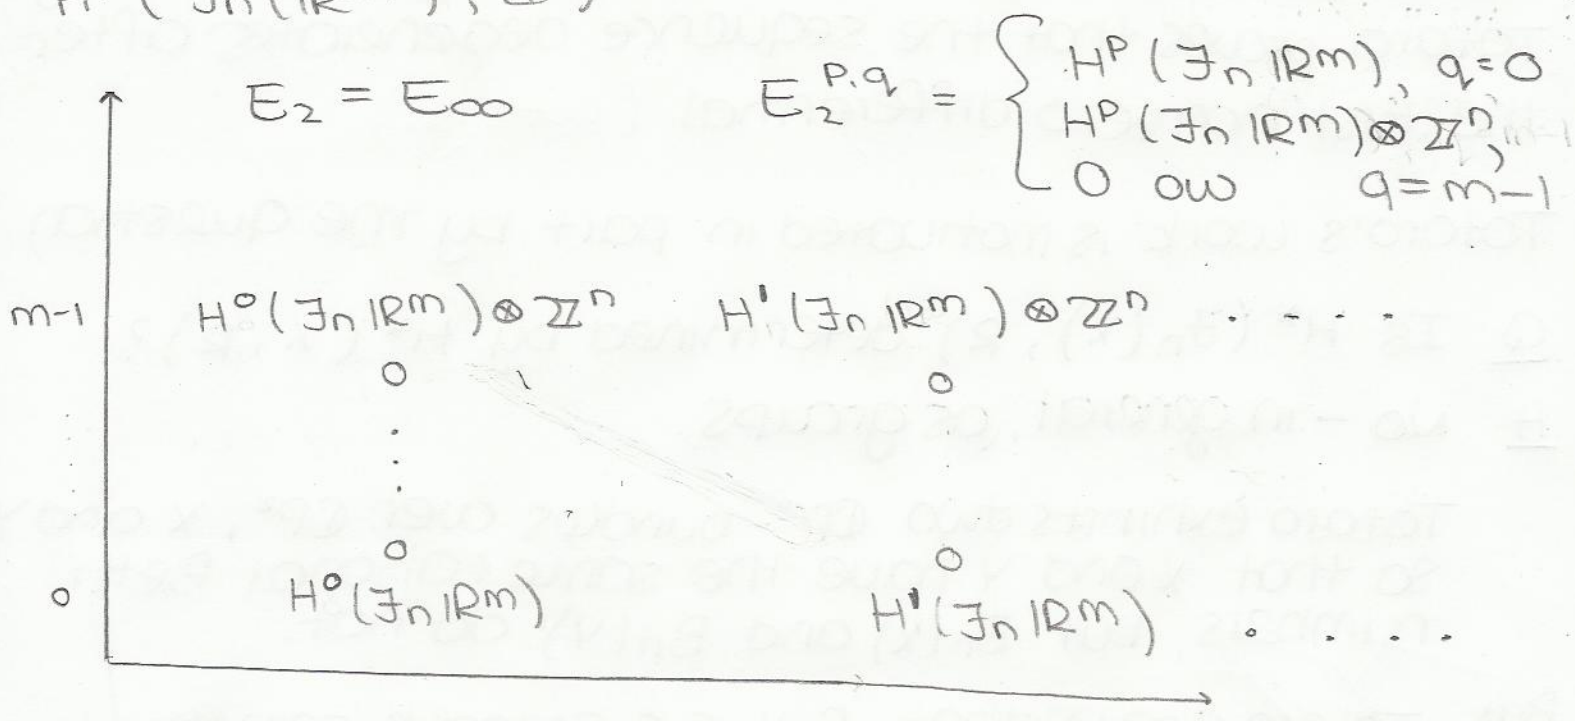 E₂ = E∞
E₂^{p,q} = { H^p (Ⅎ_n ℝ^m), q=0
H^p (Ⅎ_n ℝ^m) ⊗ ℤ^n,
0 ow q=m-1
m-1 H^0 (Ⅎ_n ℝ^m) ⊗ ℤ^n H^1 (Ⅎ_n ℝ^m) ⊗ ℤ^n . . . .
0 0
0 0
0 H^0 (Ⅎ_n ℝ^m) H^1 (Ⅎ_n ℝ^m) . . . .